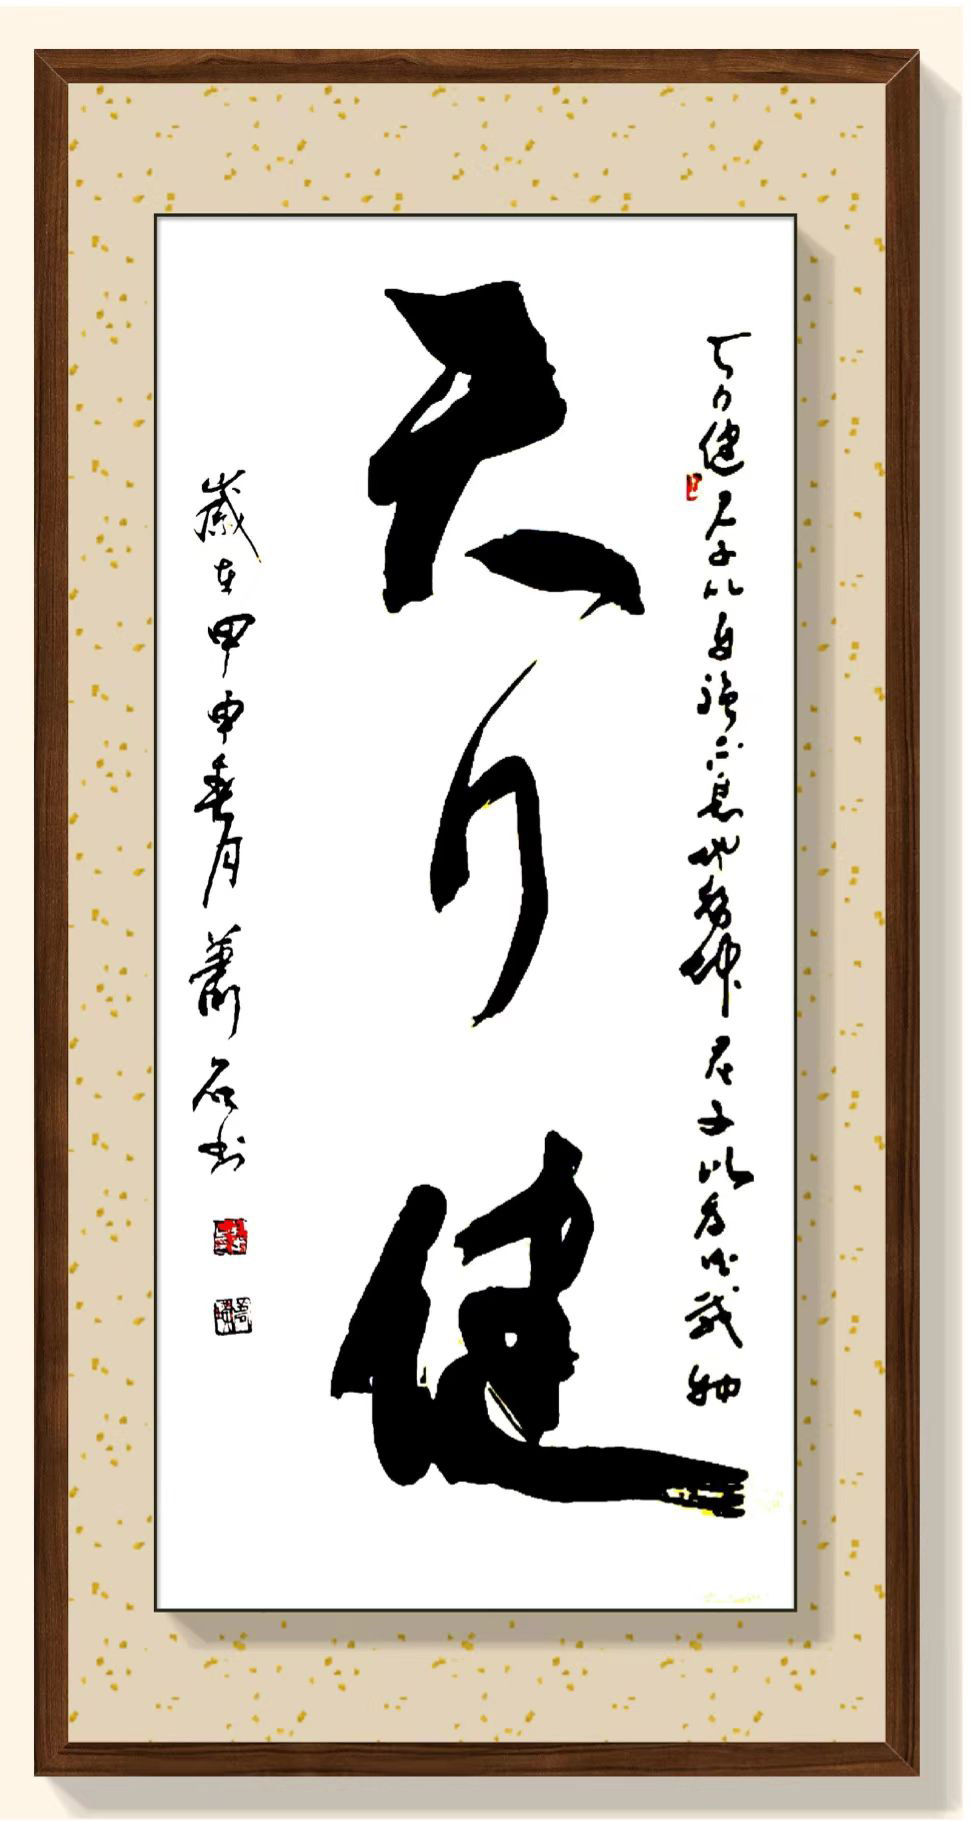 天行健君子以自强不息地势坤君子以厚德载物
天行健
岁在甲申春月萧石书